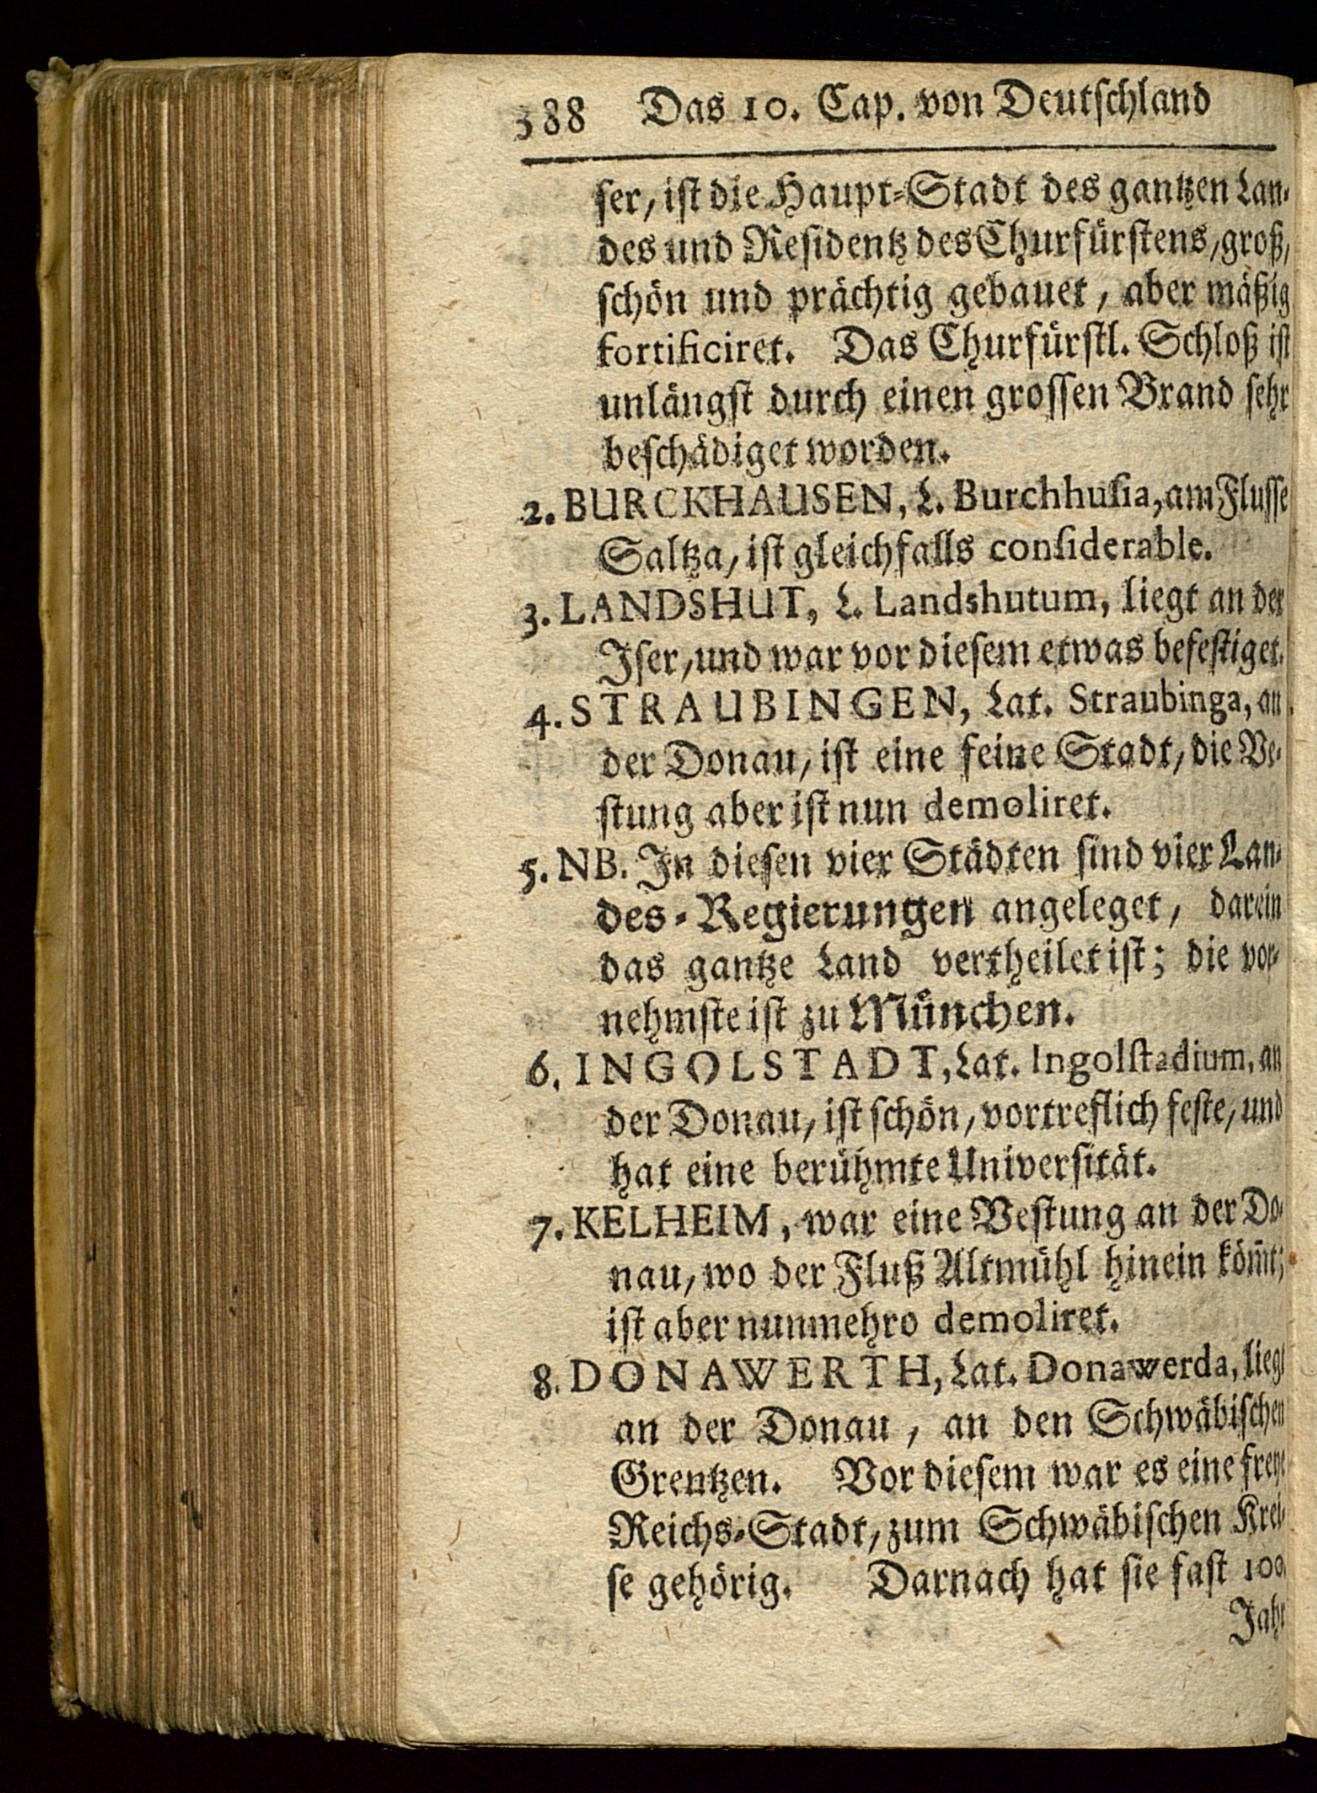 388 Das 10. Cap. von Deutschland
ser, ist die Haupt-Stadt des gantzen Lan-
des und Residentz des Churfürstens, groß,
schön und prächtig gebauet, aber mäßig
fortificiret. Das Churfürstl. Schloß ist
unlängst durch einen grossen Brand sehr
beschädiget worden.
2. BURCKHAUSEN, L. Burchhusia, am Flusse
Saltza, ist gleichfalls considerable.
3. LANDSHUT, L. Landshutum, liegt an der
Iser, und war vor diesem etwas befestiget.
4. STRAUBINGEN, Lat. Straubinga, an
der Donau, ist eine feine Stadt, die Ve-
stung aber ist nun demoliret.
5. NB. In diesen vier Städten sind vier Lan-
des-Regierungen angeleget, darein
das gantze Land vertheilet ist; die vor-
nehmste ist zu München.
6. INGOLSTADT, Lat. Ingolstadium, an
der Donau, ist schön, vortreflich feste, und
hat eine berühmte Universität.
7. KELHEIM, war eine Vestung an der Do-
nau, wo der Fluß Altmühl hinein köm̃t;
ist aber nunmehro demoliret.
8. DONAWERTH, Lat. Donawerda, liegt
an der Donau, an den Schwäbischen
Grentzen. Vor diesem war es eine freye
Reichs-Stadt, zum Schwäbischen Krei-
se gehörig. Darnach hat sie fast 100.
Jahr